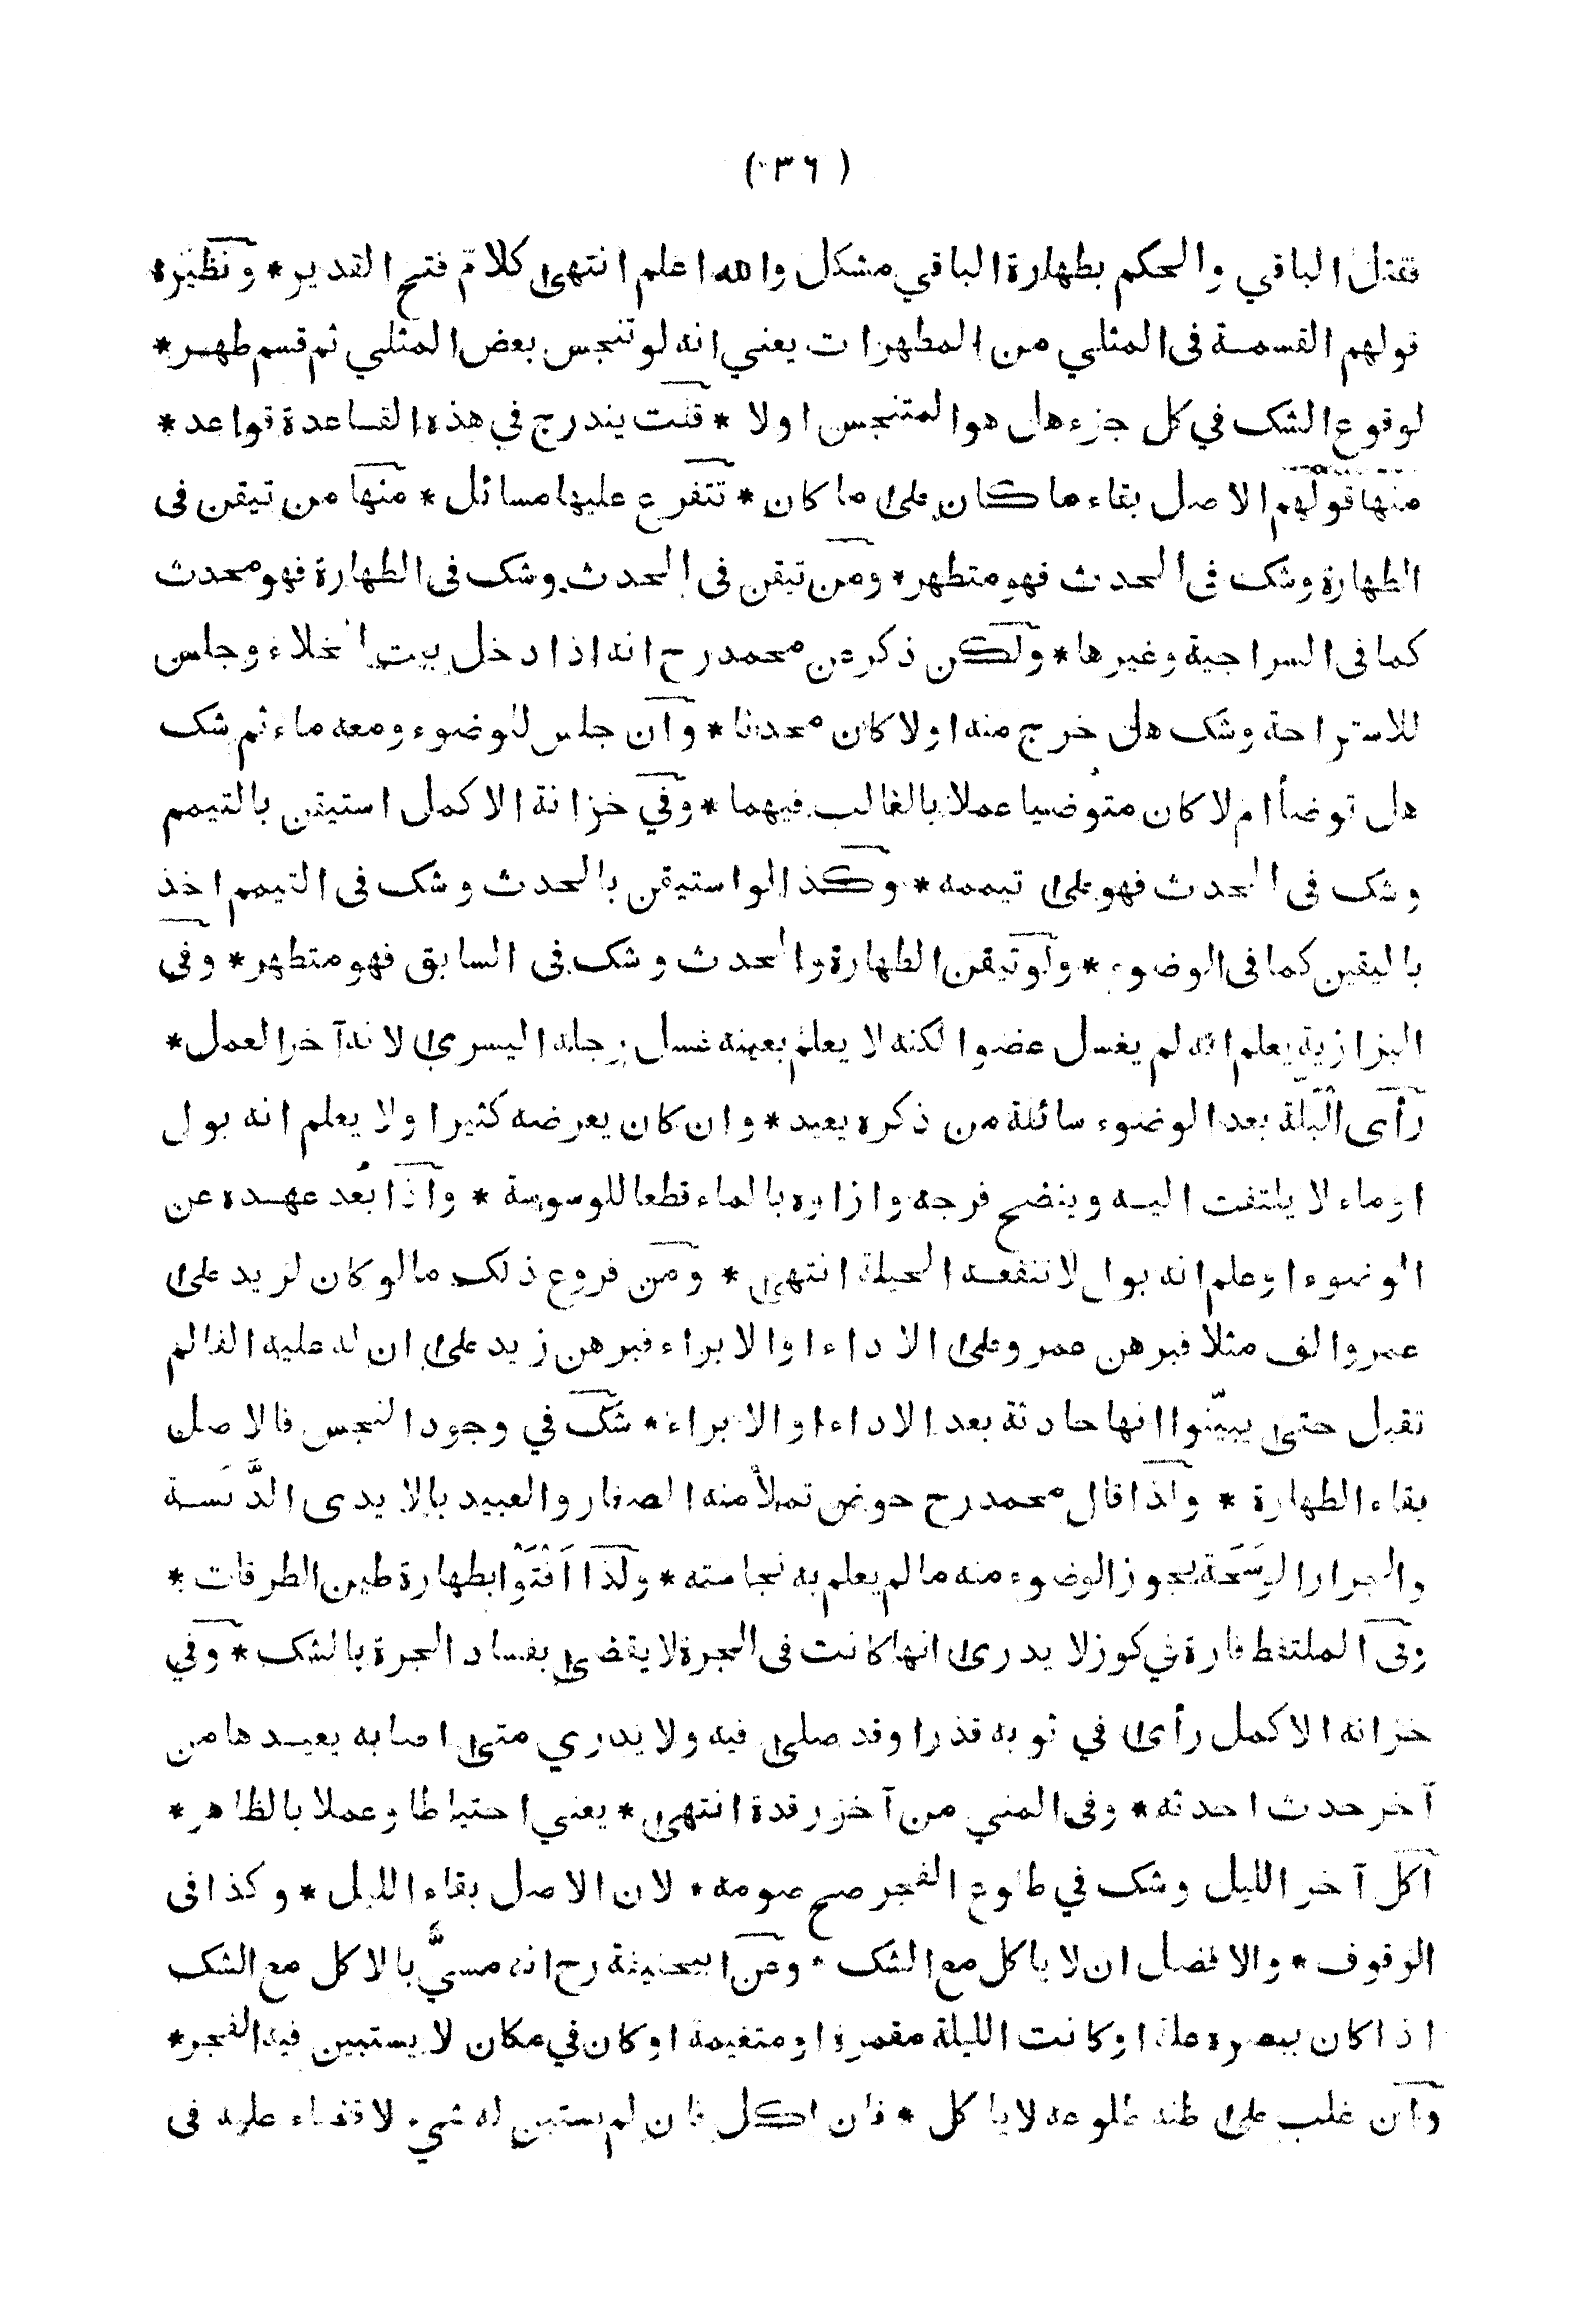 ( ٣٦ )
فقتل الباقي والحكم بطهارة الباقي مشكل والله اعلم انتهى كلام فتح القدير * ونظيره
قولهم القسمة فى المثلي من المطهرات يعني انه لو تنجس بعض المثلي ثم قسم طهر *
لوقوع الشك في كل جزء هل هو المتنجس اولا * قلت يندرج في هذه القاعدة قواعد *
منها قولهم الاصل بقاء ما كان على ما كان * تتفرع عليها مسائل * منها من تيقن فى
الطهارة وشك فى الحدث فهو متطهر * ومن تيقن فى الحدث وشك فى الطهارة فهو محدث
كما فى السراجية وغيرها * ولكن ذكر عن محمد رح انه اذا دخل بيت الخلاء وجلس
للاستراحة وشك هل خرج منه اولا كان محدثا * وان جلس للوضوء ومعه ماء ثم شك
هل توضأ ام لا كان متوضيا عملا بالغالب فيهما * وفي خزانة الاكمل استيقن بالتيمم
وشك فى الحدث فهو على تيممه * وكذا لو استيقن بالحدث وشك فى التيمم اخذ
باليقين كما فى الوضوء * ولو تيقن الطهارة والحدث وشك فى السابق فهو متطهر * وفي
البزازية يعلم انه لم يغسل عضوا لكنه لا يعلم بعينه غسل رجله اليسرى لانه آخر العمل *
رأى البلة بعد الوضوء سائلة من ذكره يعيد * وان كان يعرضه كثيرا ولا يعلم انه بول
او ماء لا يلتفت اليه وينضح فرجه وازاره بالماء قطعا للوسوسة * واذا بَعُد عهده عن
الوضوء او علم انه بول لا تنفعه الحيلة انتهى * ومن فروع ذلك ما لو كان لزيد على
عمرو الف مثلا فبرهن عمرو على الاداء او الابراء فبرهن زيد على ان له عليه الفا لم
تقبل حتى يبيّنوا انها حادثة بعد الاداء او الابراء * شك في وجود النجس فالاصل
بقاء الطهارة * ولذا قال محمد رح حوض تملأ منه الصغار والعبيد بالايدى الدَّنَسة
والجرار الوَسَخَة يجوز الوضوء منه ما لم يعلم به نجاسته * ولذا اَفْتَوْا بطهارة طين الطرقات *
وفى الملتقط فارة في كوز لا يدرى انها كانت فى الجرة لا يقضى بفساد الجرة بالشك * وفي
خزانه الاكمل رأى في ثوبه قذرا وقد صلى فيه ولا يدري متى اصابه يعيدها من
آخر حدث احدثه * وفى المني من آخر رقدة انتهى * يعني احتياطا وعملا بالظاهر *
اكل آخر الليل وشك في طلوع الفجر صح صومه * لان الاصل بقاء الليل * وكذا فى
الوقوف * والافضل ان لا ياكل مع الشك * وعن ابيحنيفة رح انه مسيٌّ بالاكل مع الشك
اذا كان ببصره علة او كانت الليلة مقمرة او متغيمة او كان في مكان لا يستبين فيه الفجر *
وان غلب على ظنه طلوعه لا ياكل * فان اكل فان لم يستبين له شيء لا قضاء عليه فى